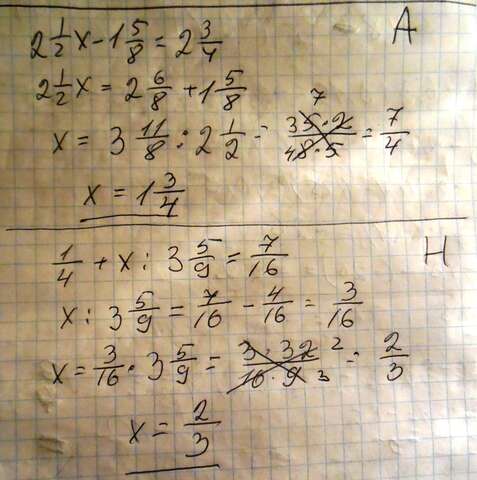 2 1/2 x - 1 5/8 = 2 3/4 A
2 1/2 x = 2 6/8 + 1 5/8
x = 3 11/8 : 2 1/2 = 35·2/8·5 = 7/4
7
4
x = 1 3/4
1/4 + x : 3 5/9 = 7/16 H
x : 3 5/9 = 7/16 - 4/16 = 3/16
x = 3/16 · 3 5/9 = 3·32/16·9 = 2/3
2
3
x = 2/3